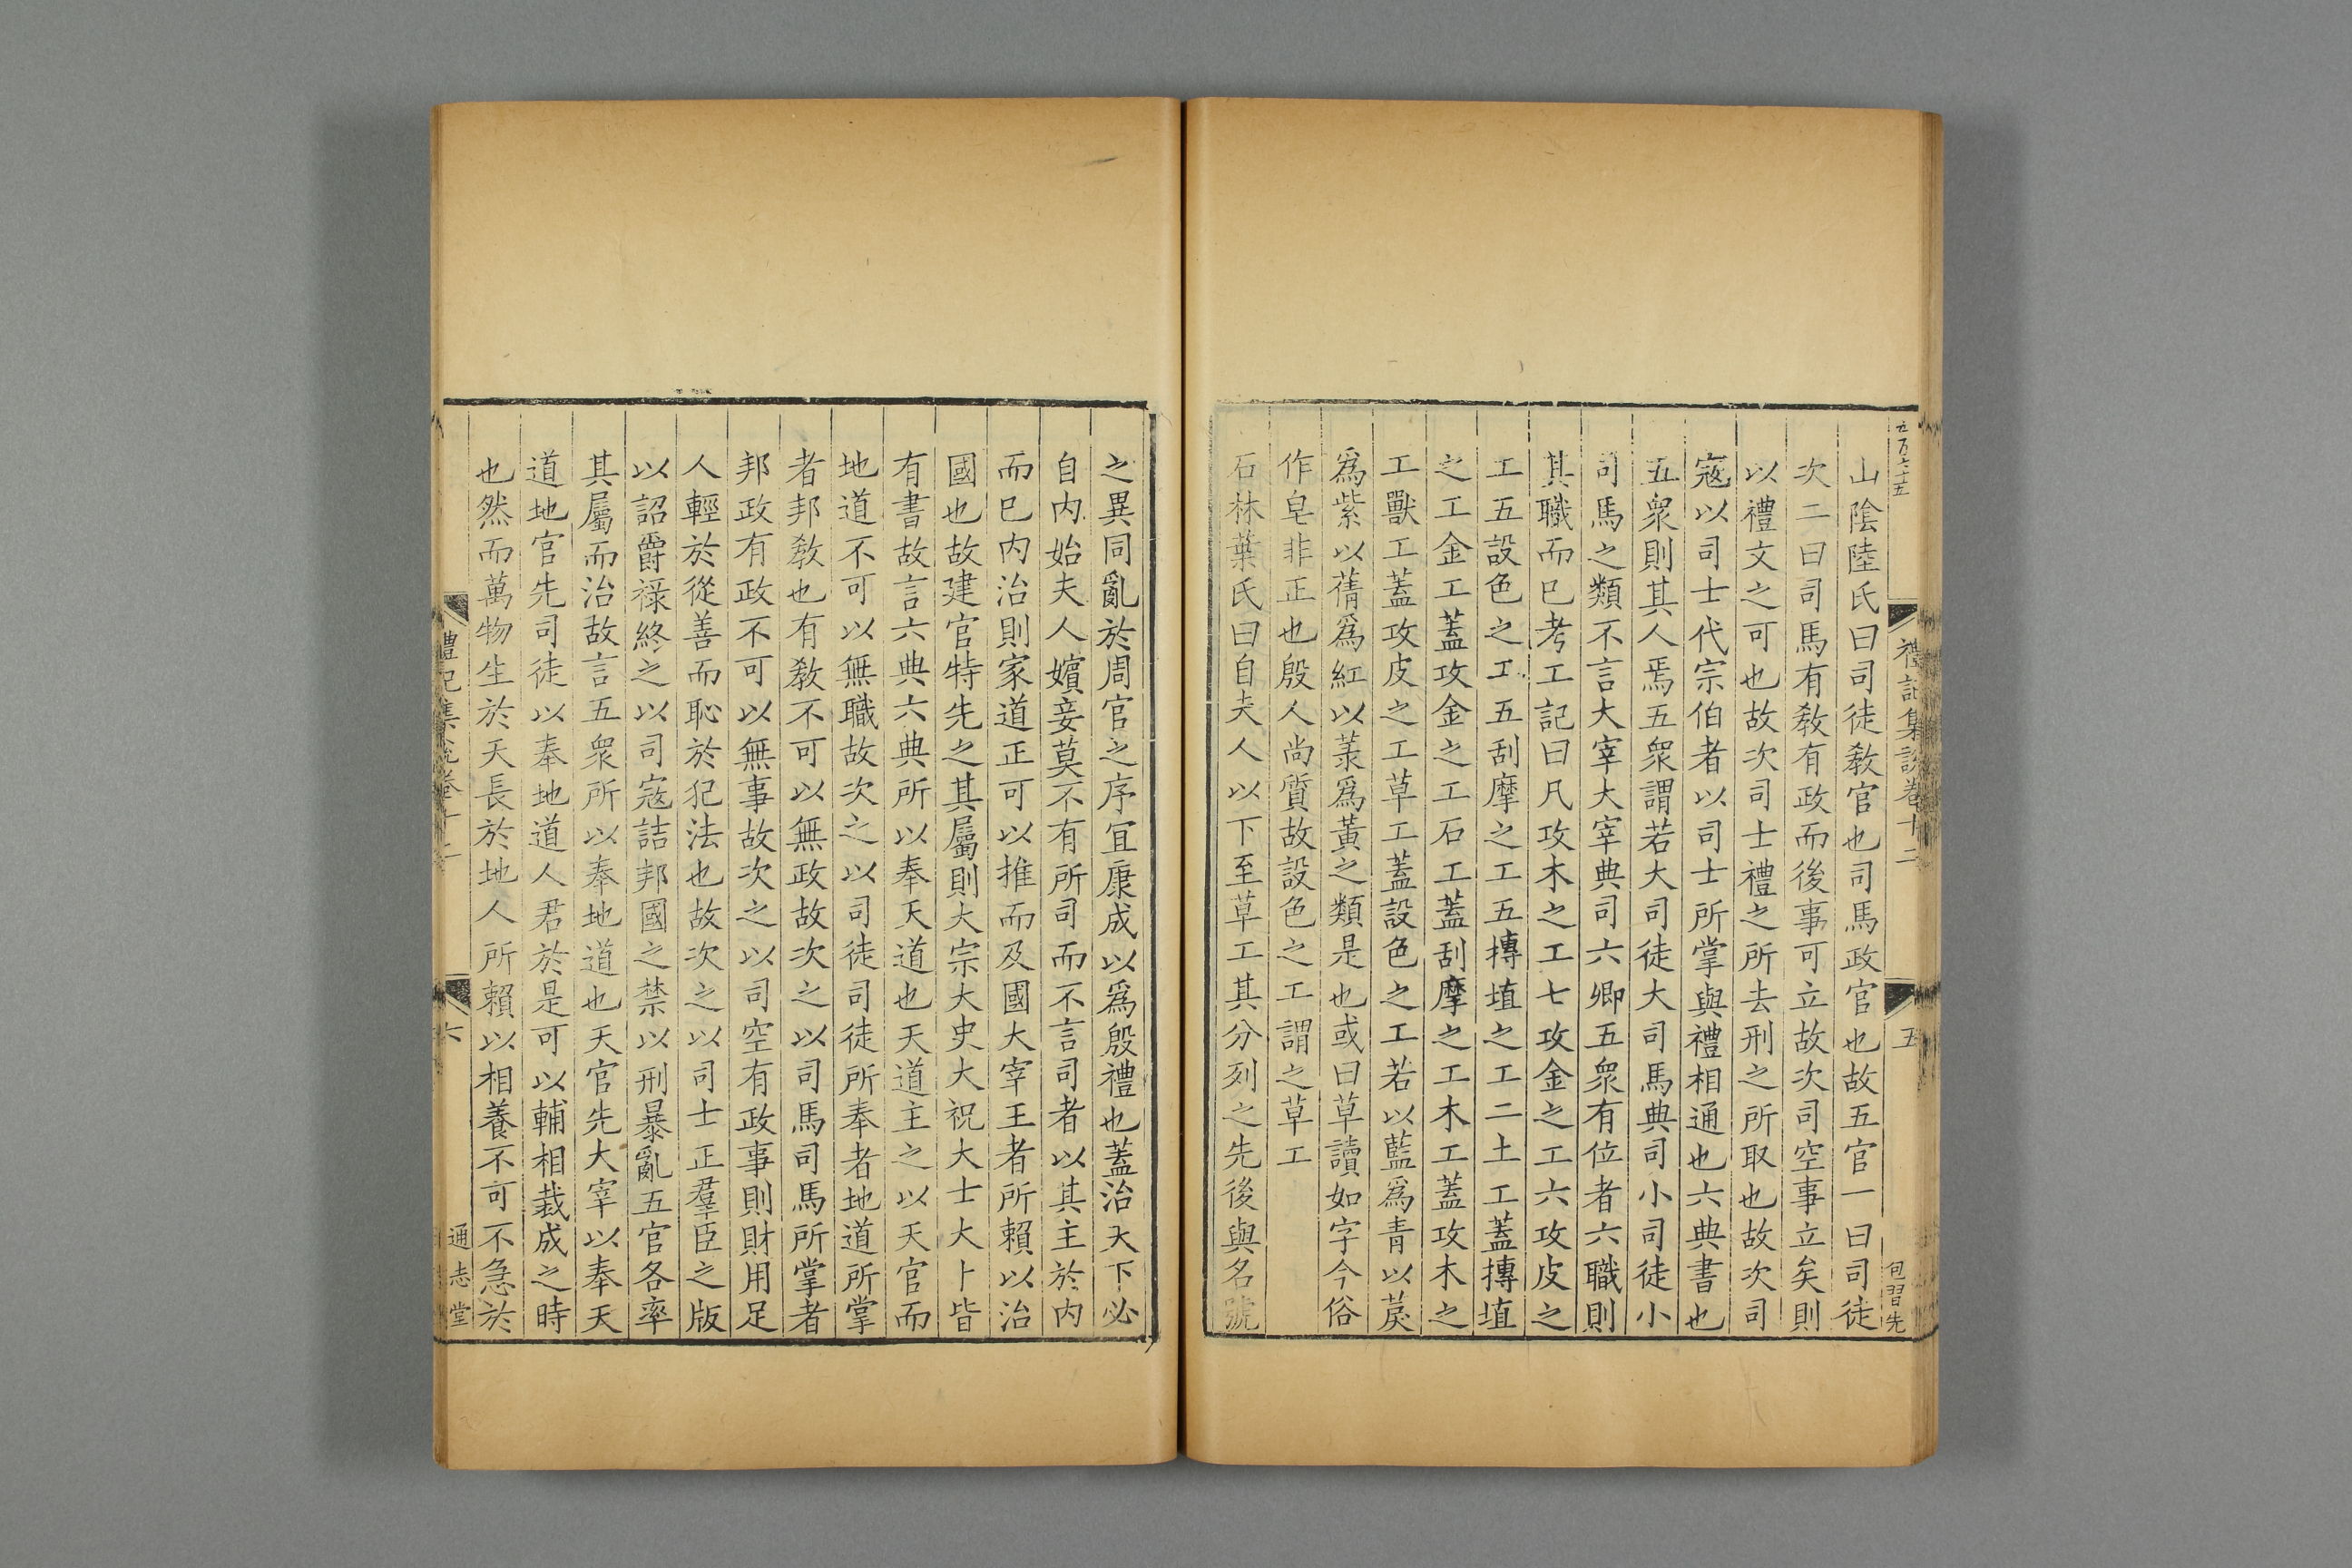 五百六十五
禮記集說卷十二
五
包習先
山陰陸氏曰司徒敎官也司馬政官也故五官一曰司徒
次二曰司馬有敎有政而後事可立故次司空事立矣則
以禮文之可也故次司士禮之所去刑之所取也故次司
寇以司士代宗伯者以司士所掌與禮相通也六典書也
五衆則其人焉五衆謂若大司徒大司馬典司小司徒小
司馬之類不言大宰大宰典司六卿五衆有位者六職則
其職而已考工記曰凡攻木之工七攻金之工六攻皮之
工五設色之工五刮摩之工五摶埴之工二土工蓋摶埴
之工金工蓋攻金之工石工蓋刮摩之工木工蓋攻木之
工獸工蓋攻皮之工草工蓋設色之工若以藍爲青以茣
爲紫以蒨爲紅以菉爲黃之類是也或曰草讀如字今俗
作皁非正也殷人尚質故設色之工謂之草工
石林葉氏曰自夫人以下至草工其分列之先後與名號
之異同亂於周官之序宜康成以爲殷禮也蓋治天下必
自内始夫人嬪妾莫不有所司而不言司者以其主於内
而已内治則家道正可以推而及國大宰王者所賴以治
國也故建官特先之其屬則大宗大史大祝大士大卜皆
有書故言六典六典所以奉天道也天道主之以天官而
地道不可以無職故次之以司徒司徒所奉者地道所掌
者邦敎也有敎不可以無政故次之以司馬司馬所掌者
邦政有政不可以無事故次之以司空有政事則財用足
人輕於從善而恥於犯法也故次之以司士正羣臣之版
以詔爵祿終之以司寇詰邦國之禁以刑暴亂五官各率
其屬而治故言五衆所以奉地道也天官先大宰以奉天
道地官先司徒以奉地道人君於是可以輔相栽成之時
也然而萬物生於天長於地人所賴以相養不可不急於
禮記集說卷十二
六
通志堂